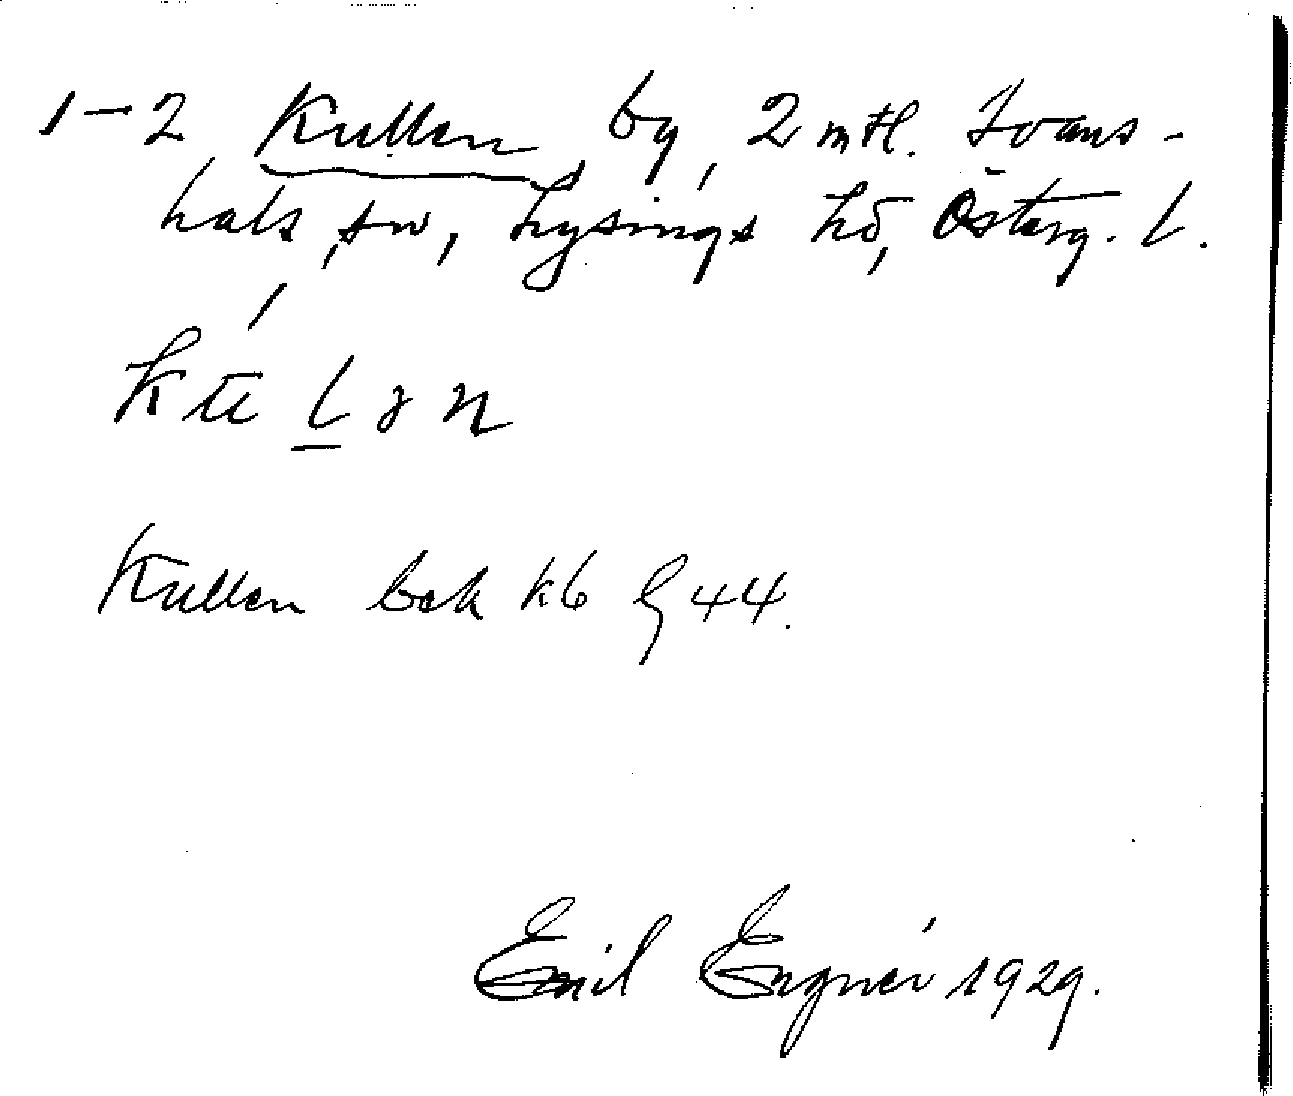 1-2 Kullen by, 2 mtl. Svans-
hals sn, Lysings hd, Österg. l.
Kullen bek kb
44.
Emil Ergnér 1929.